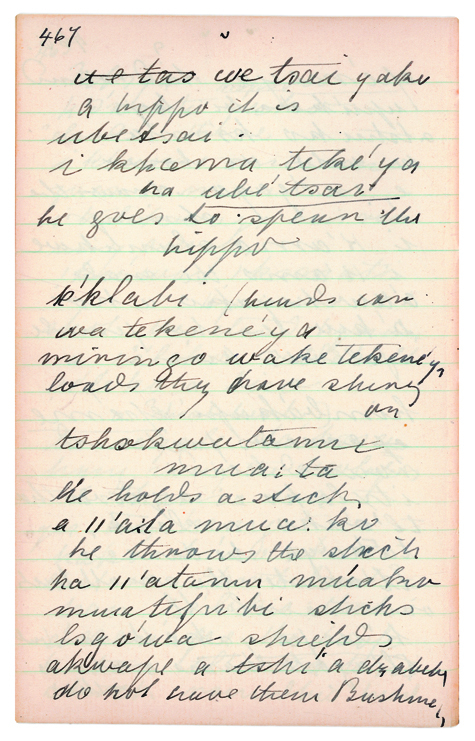 467
u e tas we tsai yaku
a hippo it is
ubetsai.
i khama teké'ya
na ubé'tsai
he goes to spear the
hippo
k'klabi (hunds
wa tekené'ya
miringo wake tekené'ya
loads they have
on
tshokwatamu
mua: ta
he holds a stick
a 11'a:ta mua: ko
he throws the stick
ha 11'atamu múako
muatifibi sticks
lsgo'wa shields
akwape a tshi"a
do not have them Bushmen